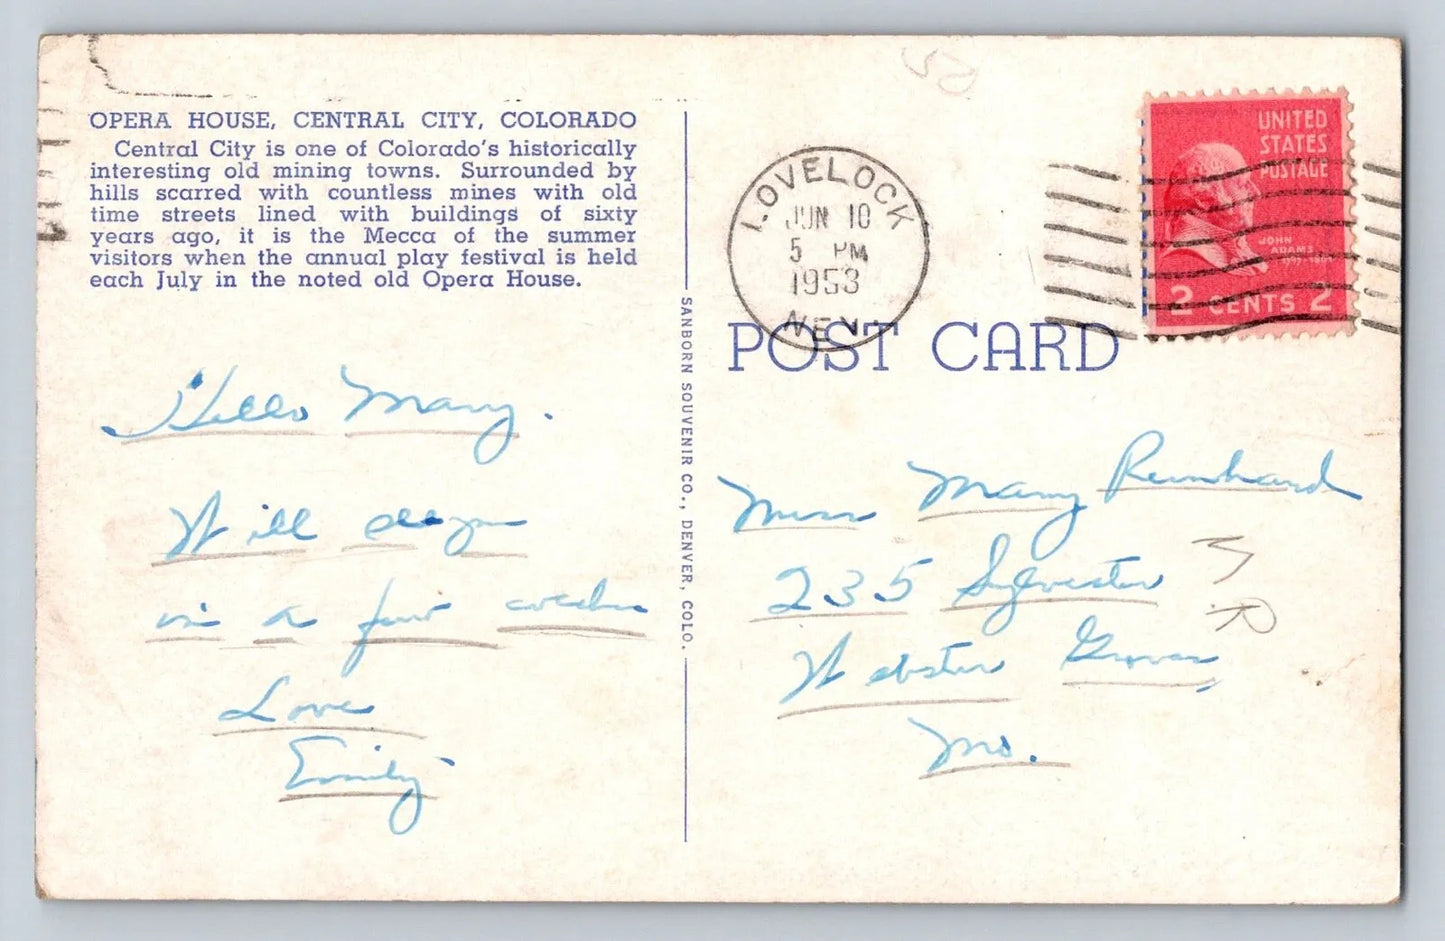 OPERA HOUSE, CENTRAL CITY, COLORADO
Central City is one of Colorado's historically
interesting old mining towns. Surrounded by
hills scarred with countless mines with old
time streets lined with buildings of sixty
years ago, it is the Mecca of the summer
visitors when the annual play festival is held
each July in the noted old Opera House.
Hello Mary.
Will
in a few weeks
Love
Emily
SANBORN SOUVENIR CO., DENVER, COLO.
LOVELOCK
JUN 10
5 PM
1953
NEV.
UNITED
STATES
POSTAGE
JOHN
ADAMS
2 CENTS 2
POST CARD
Miss Mary Reinhard
235 Sylvester
Webster Groves
Mo.